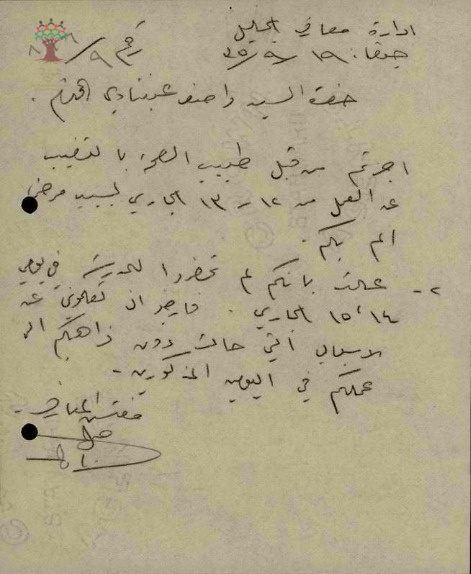 ادارة معارف الجليل
رقم ٩/
صفد. ١٩/٩/٣٥
حضرة السيد واصف عبنتاوي المحترم.
اجزتم من قبل طبيب الصحة بالتغيب
عن العمل من ١٢ - ١٣ الجاري بسبب مرض
الم بكم.
٢- علمت بانكم لم تحضروا للمدرسة في يومي
١٤، ١٥ الجاري. فارجو ان تعلموني عن
الاسباب التي حالت دون ذهابكم الى
عملكم في اليومين المذكورين.
مفتش المعارف